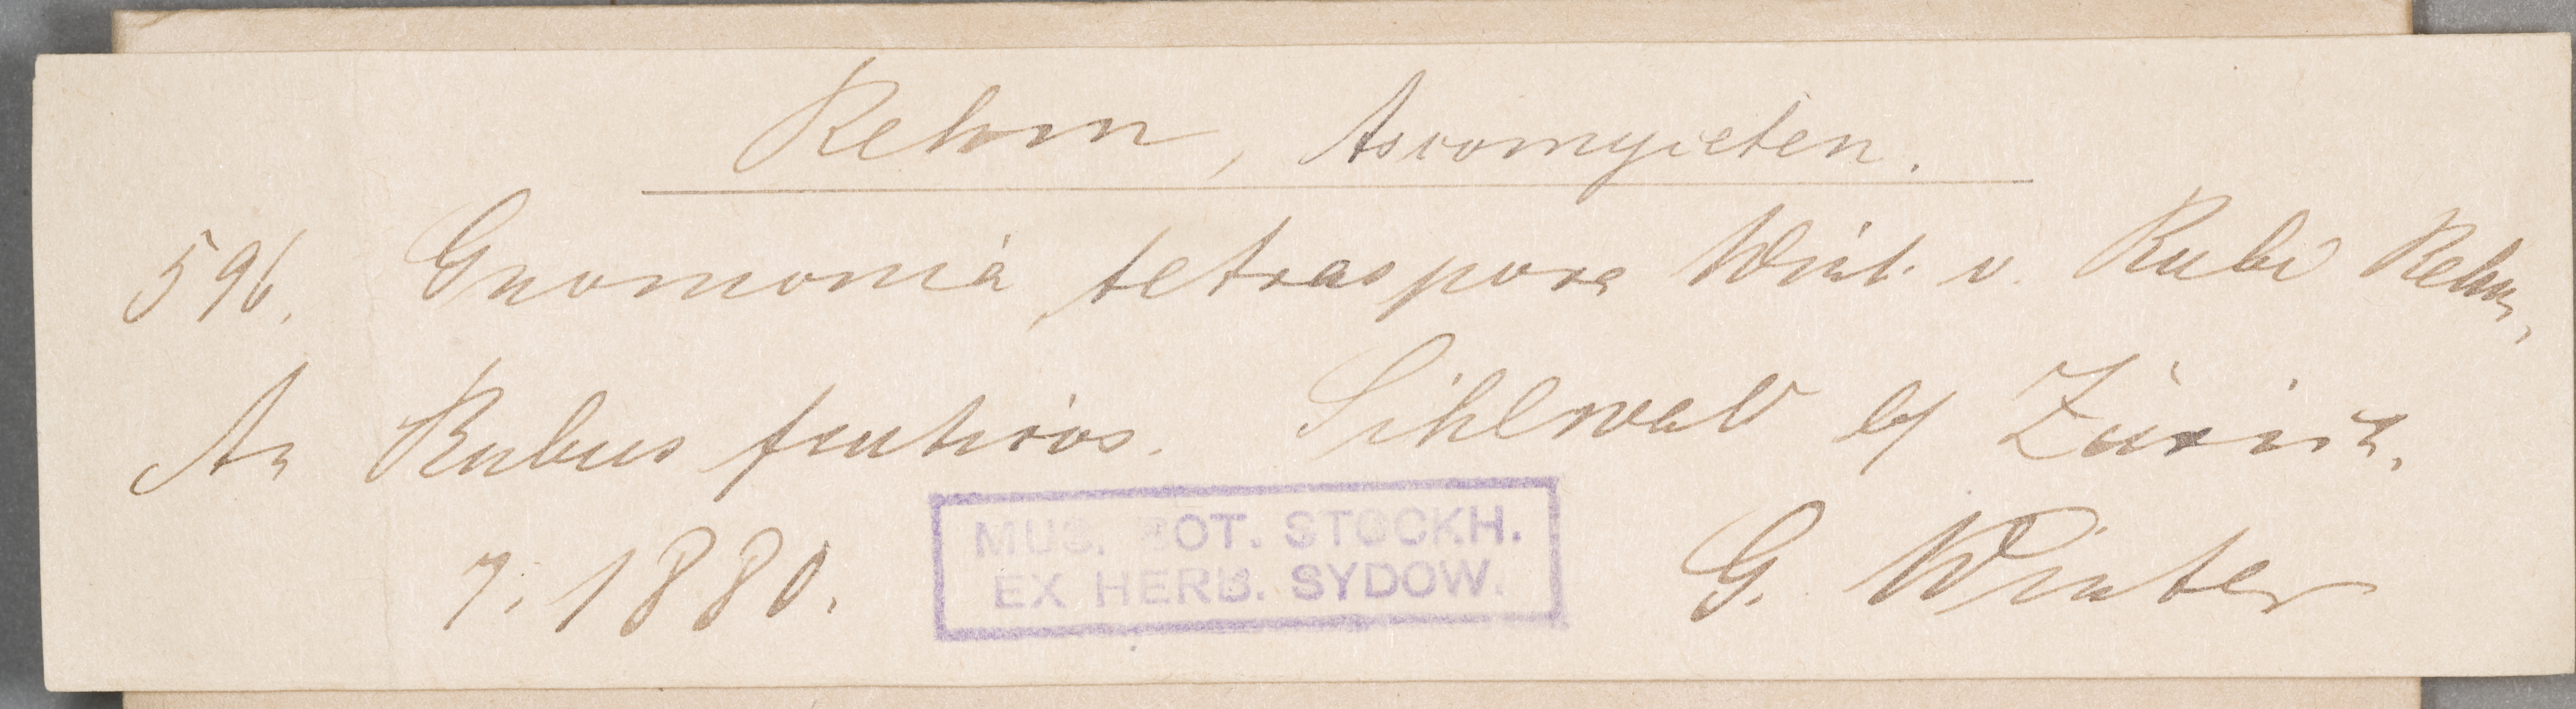 Rehm, Ascomyceten.
596. Gnomonia tetraspora Wint. v. Rubi Rehm.
An Rubus fruticos. Sihlwald b/ Zürich.
7. 1880. G. Winter
MUS. BOT. STOCKH.
EX HERB. SYDOW.